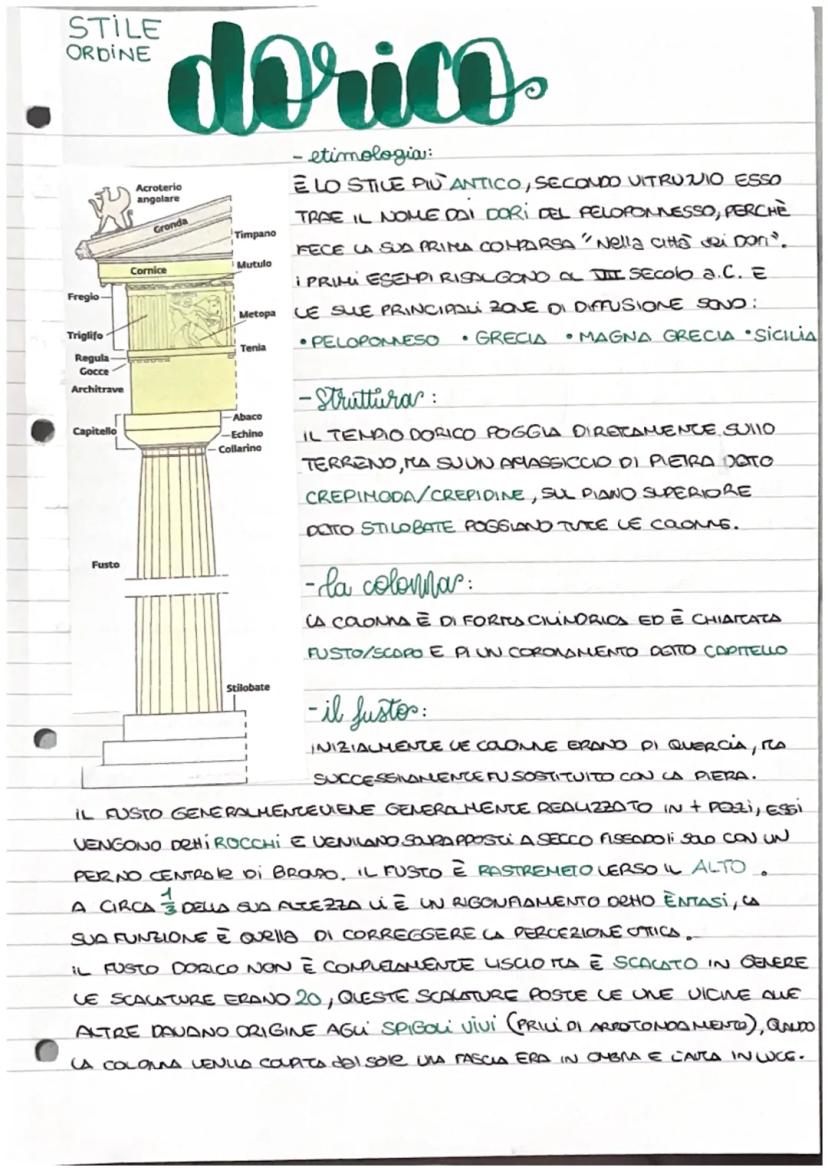 STILE
ORDINE
dorico
Acroterio
angolare
Gronda
Timpano
Cornice
Mutulo
Fregio
Metopa
Triglifo
Tenia
Regula
Gocce
Architrave
Abaco
Capitello
Echino
Collarino
Fusto
Stilobate
- etimologia:
È LO STILE PIÙ ANTICO, SECONDO VITRUVIO ESSO
TRAE IL NOME DAI DORI DEL PELOPONNESSO, PERCHÈ
FECE LA SUA PRIMA COMPARSA "Nella città dei Dori".
i PRIMI ESEMPI RISALGONO AL VII SECOLO a.C. E
LE SUE PRINCIPALI ZONE DI DIFFUSIONE SONO:
• PELOPONNESO • GRECIA • MAGNA GRECIA • SICILIA
- Struttura:
IL TEMPIO DORICO POGGIA DIRETAMENTE SULLO
TERRENO, MA SU UN AMASSICCIO DI PIETRA DETTO
CREPIMODA/CREPIDINE, SUL PIANO SUPERIORE
DETTO STILOBATE POGGIANO TUTE LE COLONNE.
- la colonna:
LA COLONNA È DI FORMA CILINDRICA ED È CHIAMATA
FUSTO/SCAPO E DI UN CORONAMENTO DETTO CAPITELLO
- il fusto:
INIZIALMENTE LE COLONNE ERANO DI QUERCIA, MA
SUCCESSIVAMENTE FU SOSTITUITO CON LA PIERA.
IL FUSTO GENERALMENTEVIENE GENERALMENTE REALIZZATO IN + PEZZI, ESSI
VENGONO DETTI ROCCHI E VENIVANO SOVRAPPOSTI A SECCO FISSADOLI SOLO CON UN
PERNO CENTRALE DI BRONZO. IL FUSTO È RASTREMETO VERSO IL ALTO.
A CIRCA 1/3 DELLA SUA ALTEZZA VI È UN RIGONFIAMENTO DETTO ÈNTASI, LA
SUA FUNZIONE È QUELLA DI CORREGGERE LA PERCEZIONE OTTICA.
IL FUSTO DORICO NON È COMPLETAMENTE LISCIO MA È SCALATO IN GENERE
LE SCALATURE ERANO 20, QUESTE SCALATURE POSTE LE UNE VICINE ALLE
ALTRE DAVANO ORIGINE AGLI SPIGOLI VIVI (PRIVI DI ARROTONDAMENTO), QUANDO
LA COLONNA VENIVA COLPITA dal sole UNA FASCIA ERA IN OMBRA E L'ALTRA IN LUCE.